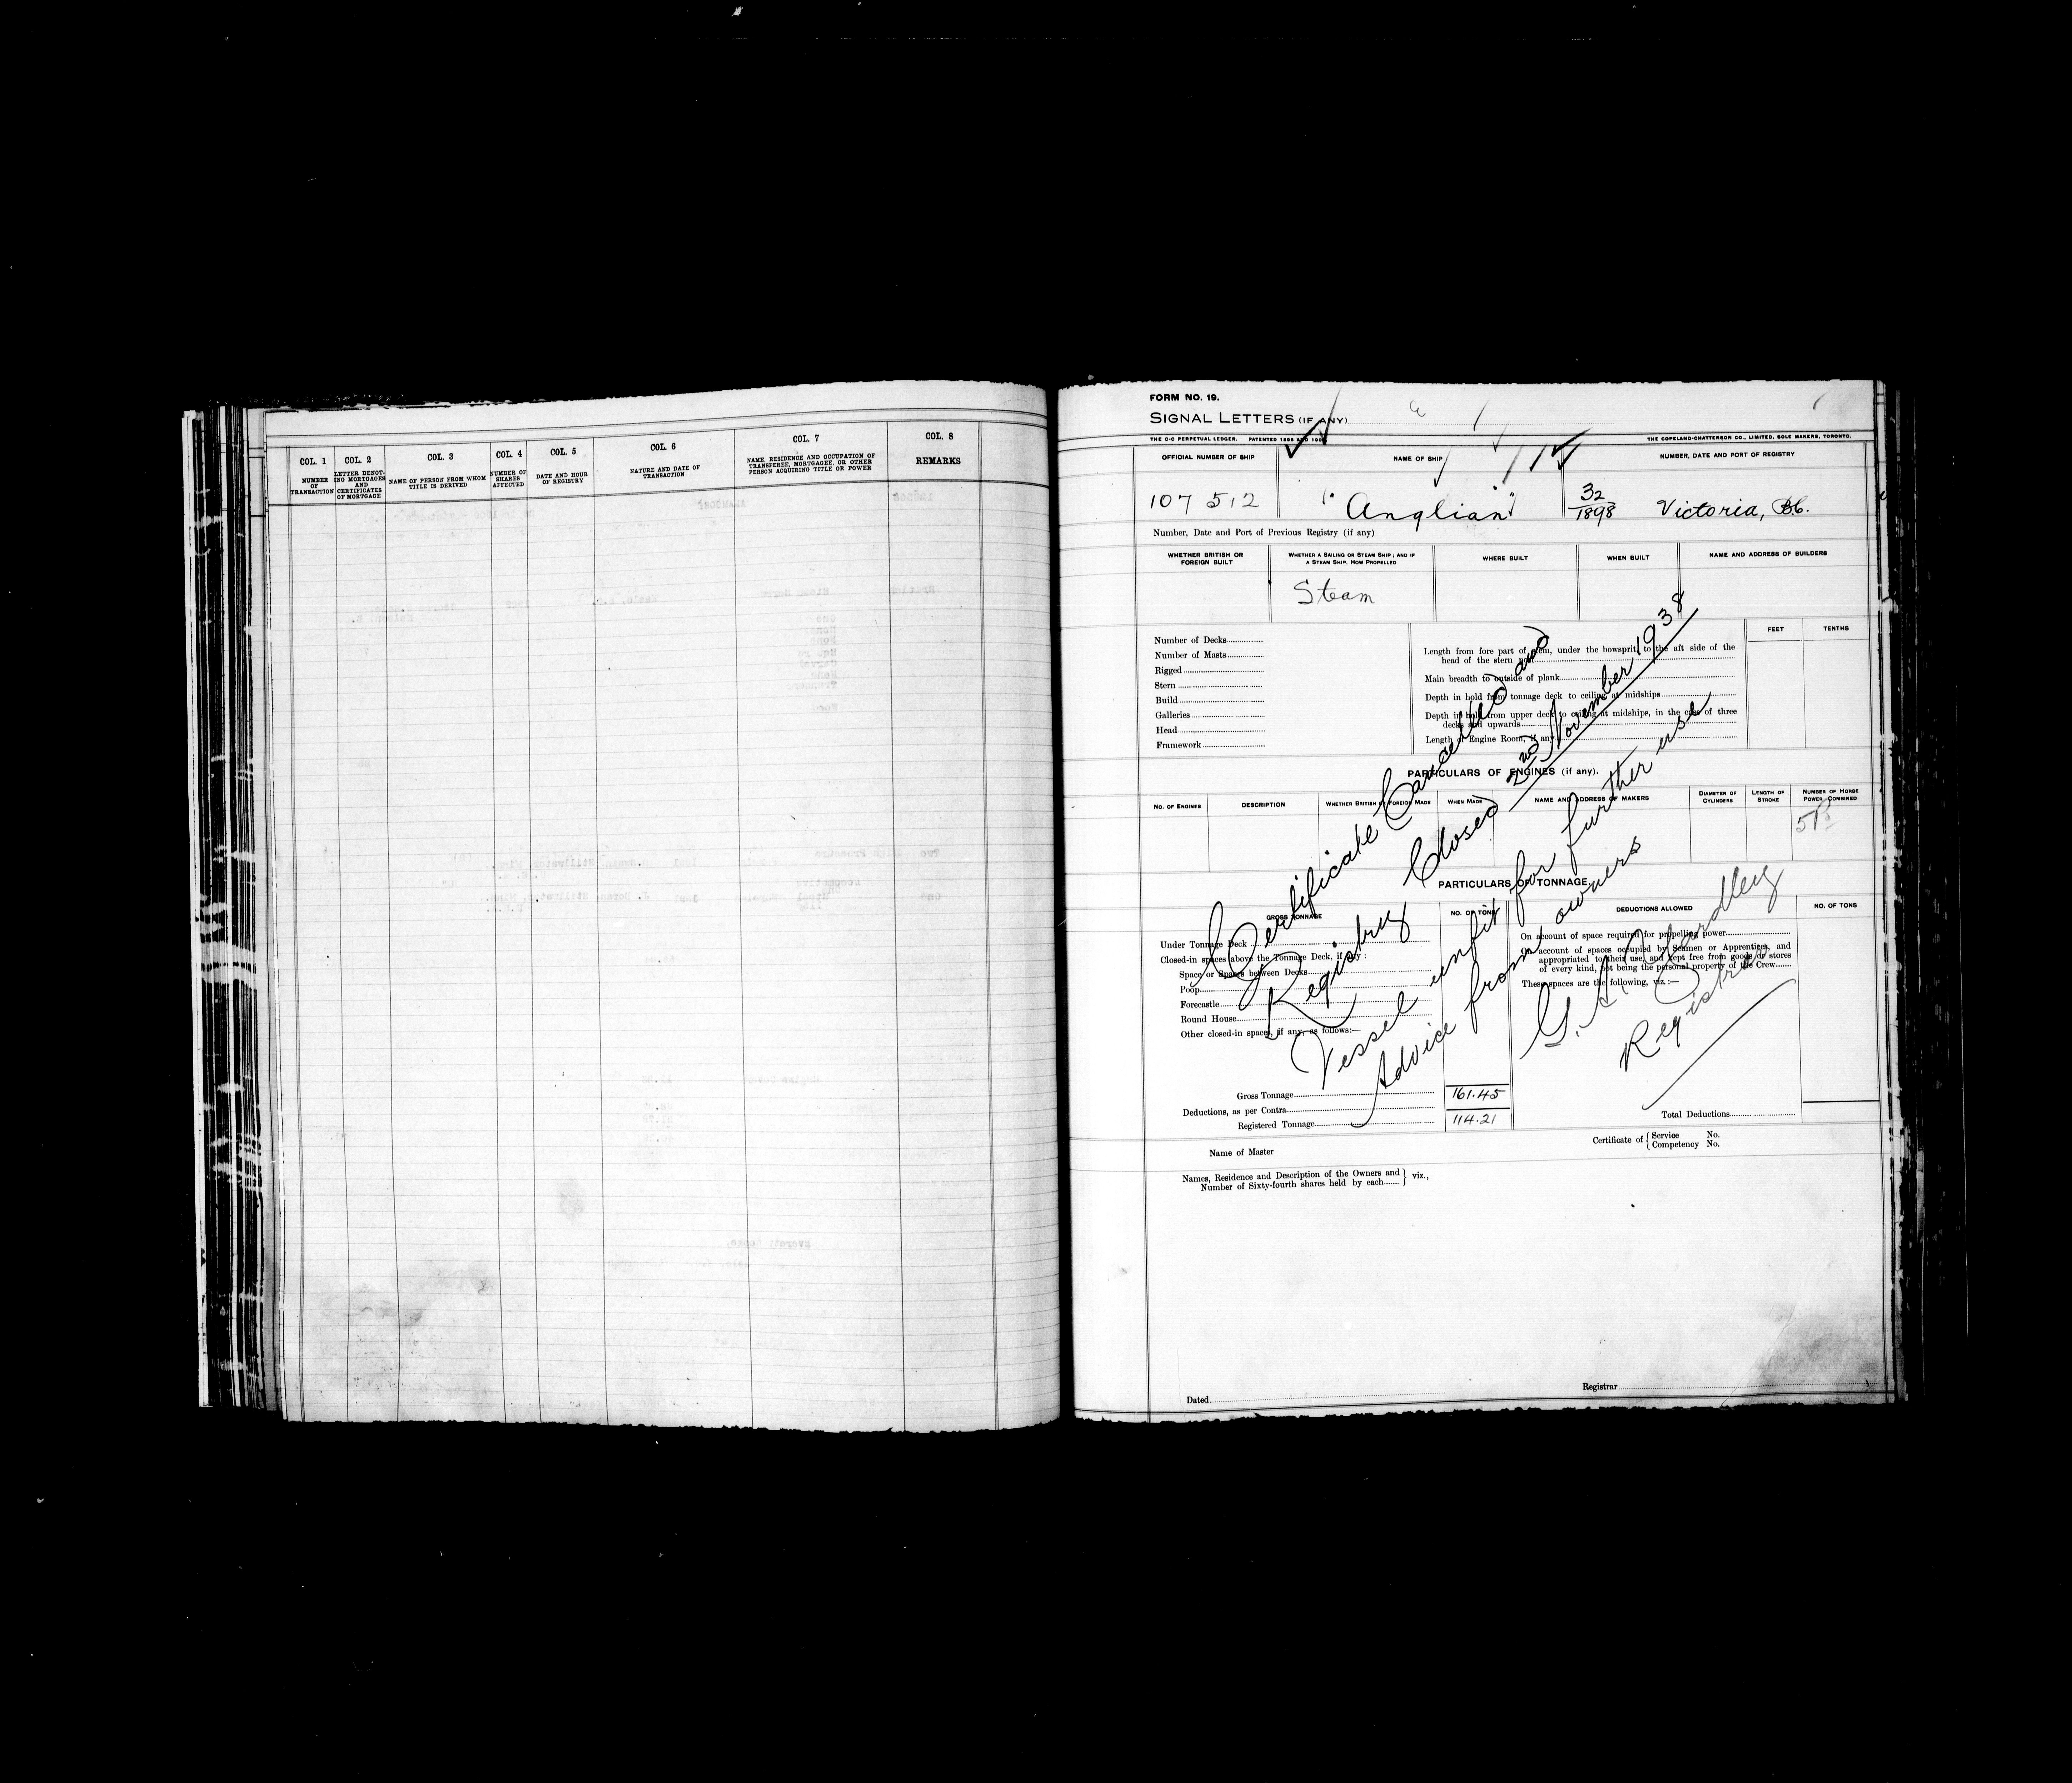 COL. 1
NUMBER OF TRANSACTION
COL. 2
LETTER DENOTING MORTGAGES AND CERTIFICATES OF MORTGAGE
COL. 3
NAME OF PERSON FROM WHOM TITLE IS DERIVED
COL. 4
NUMBER OF SHARES AFFECTED
COL. 5
DATE AND HOUR OF REGISTRY
COL. 6
NATURE AND DATE OF TRANSACTION
COL. 7
NAME, RESIDENCE AND OCCUPATION OF TRANSFEREE, MORTGAGEE, OR OTHER PERSON ACQUIRING TITLE OR POWER
COL. 8
REMARKS
FORM NO. 19.
SIGNAL LETTERS (IF ANY)
THE C-C PERPETUAL LEDGER. PATENTED
THE COPELAND-CHATTERSON CO., LIMITED, SOLE MAKERS, TORONTO.
OFFICIAL NUMBER OF SHIP
NAME OF SHIP
NUMBER, DATE AND PORT OF REGISTRY
107 512
"Anglian"
32/1898 Victoria, B.C.
Number, Date and Port of Previous Registry (if any)
WHETHER BRITISH OR FOREIGN BUILT
WHETHER A SAILING OR STEAM SHIP; AND IF A STEAM SHIP, HOW PROPELLED
WHERE BUILT
WHEN BUILT
NAME AND ADDRESS OF BUILDERS
Steam
Number of Decks
Number of Masts
Rigged
Stern
Build
Galleries
Head
Framework
FEET
TENTHS
Length from fore part of stem, under the bowsprit, to the aft side of the
head of the stern post
Main breadth to outside of plank
Depth in hold from tonnage deck to ceiling at midships
Depth in hold from upper deck to ceiling at midships, in the case of three
decks and upwards
Length of Engine Room, if any
PARTICULARS OF ENGINES (if any).
NO. OF ENGINES
DESCRIPTION
WHETHER BRITISH OR FOREIGN MADE
WHEN MADE
NAME AND ADDRESS OF MAKERS
DIAMETER OF CYLINDERS
LENGTH OF STROKE
NUMBER OF HORSE POWER COMBINED
PARTICULARS OF TONNAGE
GROSS TONNAGE
NO. OF TONS
DEDUCTIONS ALLOWED
NO. OF TONS
Under Tonnage Deck
Closed-in spaces above the Tonnage Deck, if any:
Space or Spaces between Decks
Poop
Forecastle
Round House
Other closed-in spaces, if any, as follows:—
On account of space required for propelling power
On account of spaces occupied by Seamen or Apprentices, and
appropriated to their use, and kept free from goods or stores
of every kind, not being the personal property of the Crew
These spaces are the following, viz.:—
Certificate Cancelled and
Registry Closed 2nd November 1938
Vessel unfit for further use
Advice from owners
G. A. Yardley
Registrar
Gross Tonnage 161.45
Deductions, as per Contra
Registered Tonnage 114.21
Total Deductions
Name of Master
Certificate of { Service No.
Competency No.
Names, Residence and Description of the Owners and } viz.,
Number of Sixty-fourth shares held by each
Dated
Registrar